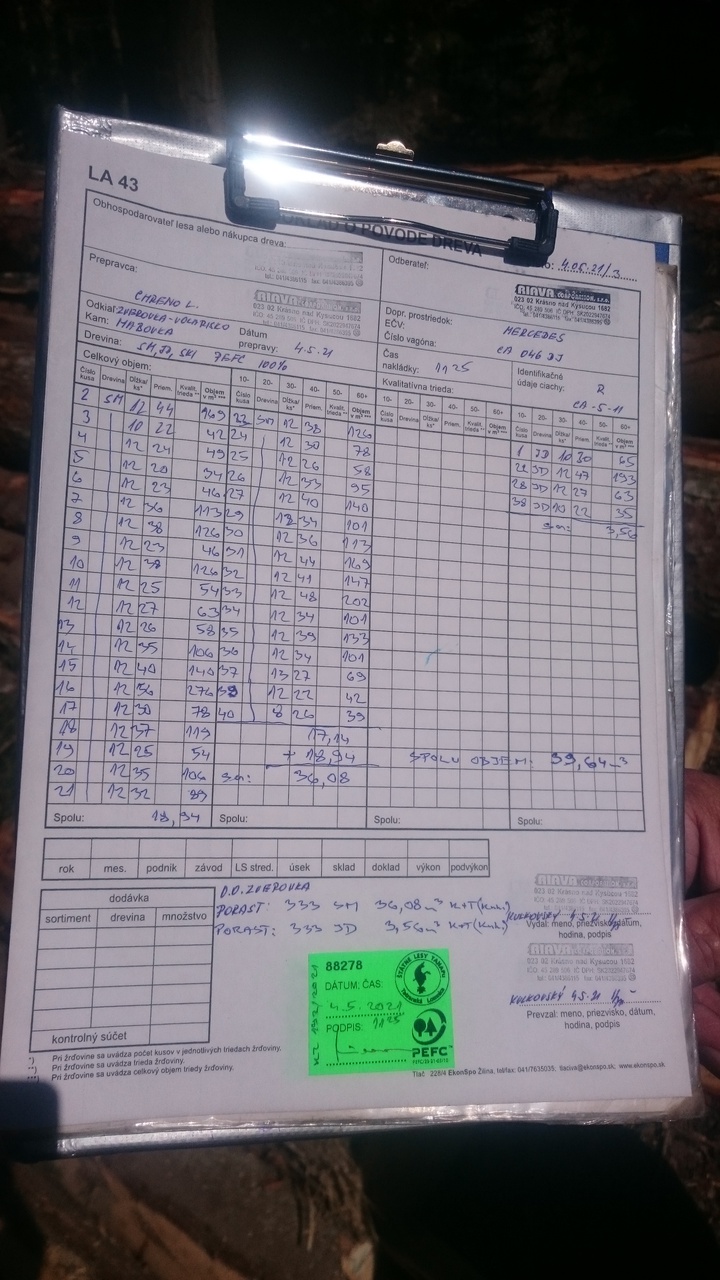 LA 43
DOKLAD O PÔVODE DREVA
Obhospodarovateľ lesa alebo nákupca dreva:
4.05.21/3
Prepravca:
Odberateľ:
RIAVA CORPORATION, s.r.o.
023 02 Krásno nad Kysucou 1682
Odkiaľ: ZVEROVKA-
Kam: HABOVKA
Dátum prepravy: 4.5.21
Dopr. prostriedok: MERCEDES
EČV:
Číslo vagóna: CA 046 JJ
Drevina: SM, JD, PEFC 100%
Čas nakládky: 11 25
Identifikačné údaje ciachy: R
CA-5-11
Celkový objem:
Kvalitatívna trieda:
Číslo kusa Drevina Dĺžka/ks* Priem. Kvalit. trieda ** Objem v m³ ***
10- 20- 30- 40- 50- 60+
2 SM 12 44 169 23 SM 12 38 126
3 10 22 42 24 12 30 78 1 JD 10 30 65
4 12 24 49 25 12 26 58 22 JD 12 47 193
5 12 20 34 26 12 33 95 28 JD 12 27 63
6 12 23 46 27 12 40 140 38 JD 10 22 35
7 12 36 113 29 12 34 101 3,56
8 12 38 126 30 12 36 113
9 12 23 46 31 12 44 169
10 12 38 126 32 12 41 147
11 12 25 54 33 12 48 202
12 12 27 63 34 12 34 101
13 12 26 58 35 12 39 133
14 12 35 106 36 12 34 101
15 12 40 140 37 13 27 69
16 12 56 276 39 12 22 42
17 12 30 78 40 8 26 39
18 12 37 119 17,14
19 12 25 54 + 18,94 SPOLU OBJEM: 39,64 m3
20 12 35 106 36,08
21 12 32 89
Spolu: 18,94 Spolu: Spolu: Spolu:
rok mes. podnik závod LS stred. úsek sklad doklad výkon podvýkon
dodávka
sortiment drevina množstvo
kontrolný súčet
O.O. ZVEROVKA
PORAST: 333 SM 36,08 m3 K+T
PORAST: 333 JD 3,56 m3 K+T
4.5.21
Vydal: meno, priezvisko, dátum, hodina, podpis
4.5.21
Prevzal: meno, priezvisko, dátum, hodina, podpis
88278
DÁTUM: ČAS:
4.5.2021
11 25
PODPIS:
ŠTÁTNE LESY TANAPU
Tatranská Lomnica
PEFC
*) Pri žrďovine sa uvádza počet kusov v jednotlivých triedach žrďoviny.
**) Pri žrďovine sa uvádza trieda žrďoviny.
***) Pri žrďovine sa uvádza celkový objem triedy žrďoviny.
Tlač 228/4 EkonSpo Žilina, tel/fax: 041/7635035, tlaciva@ekonspo.sk; www.ekonspo.sk